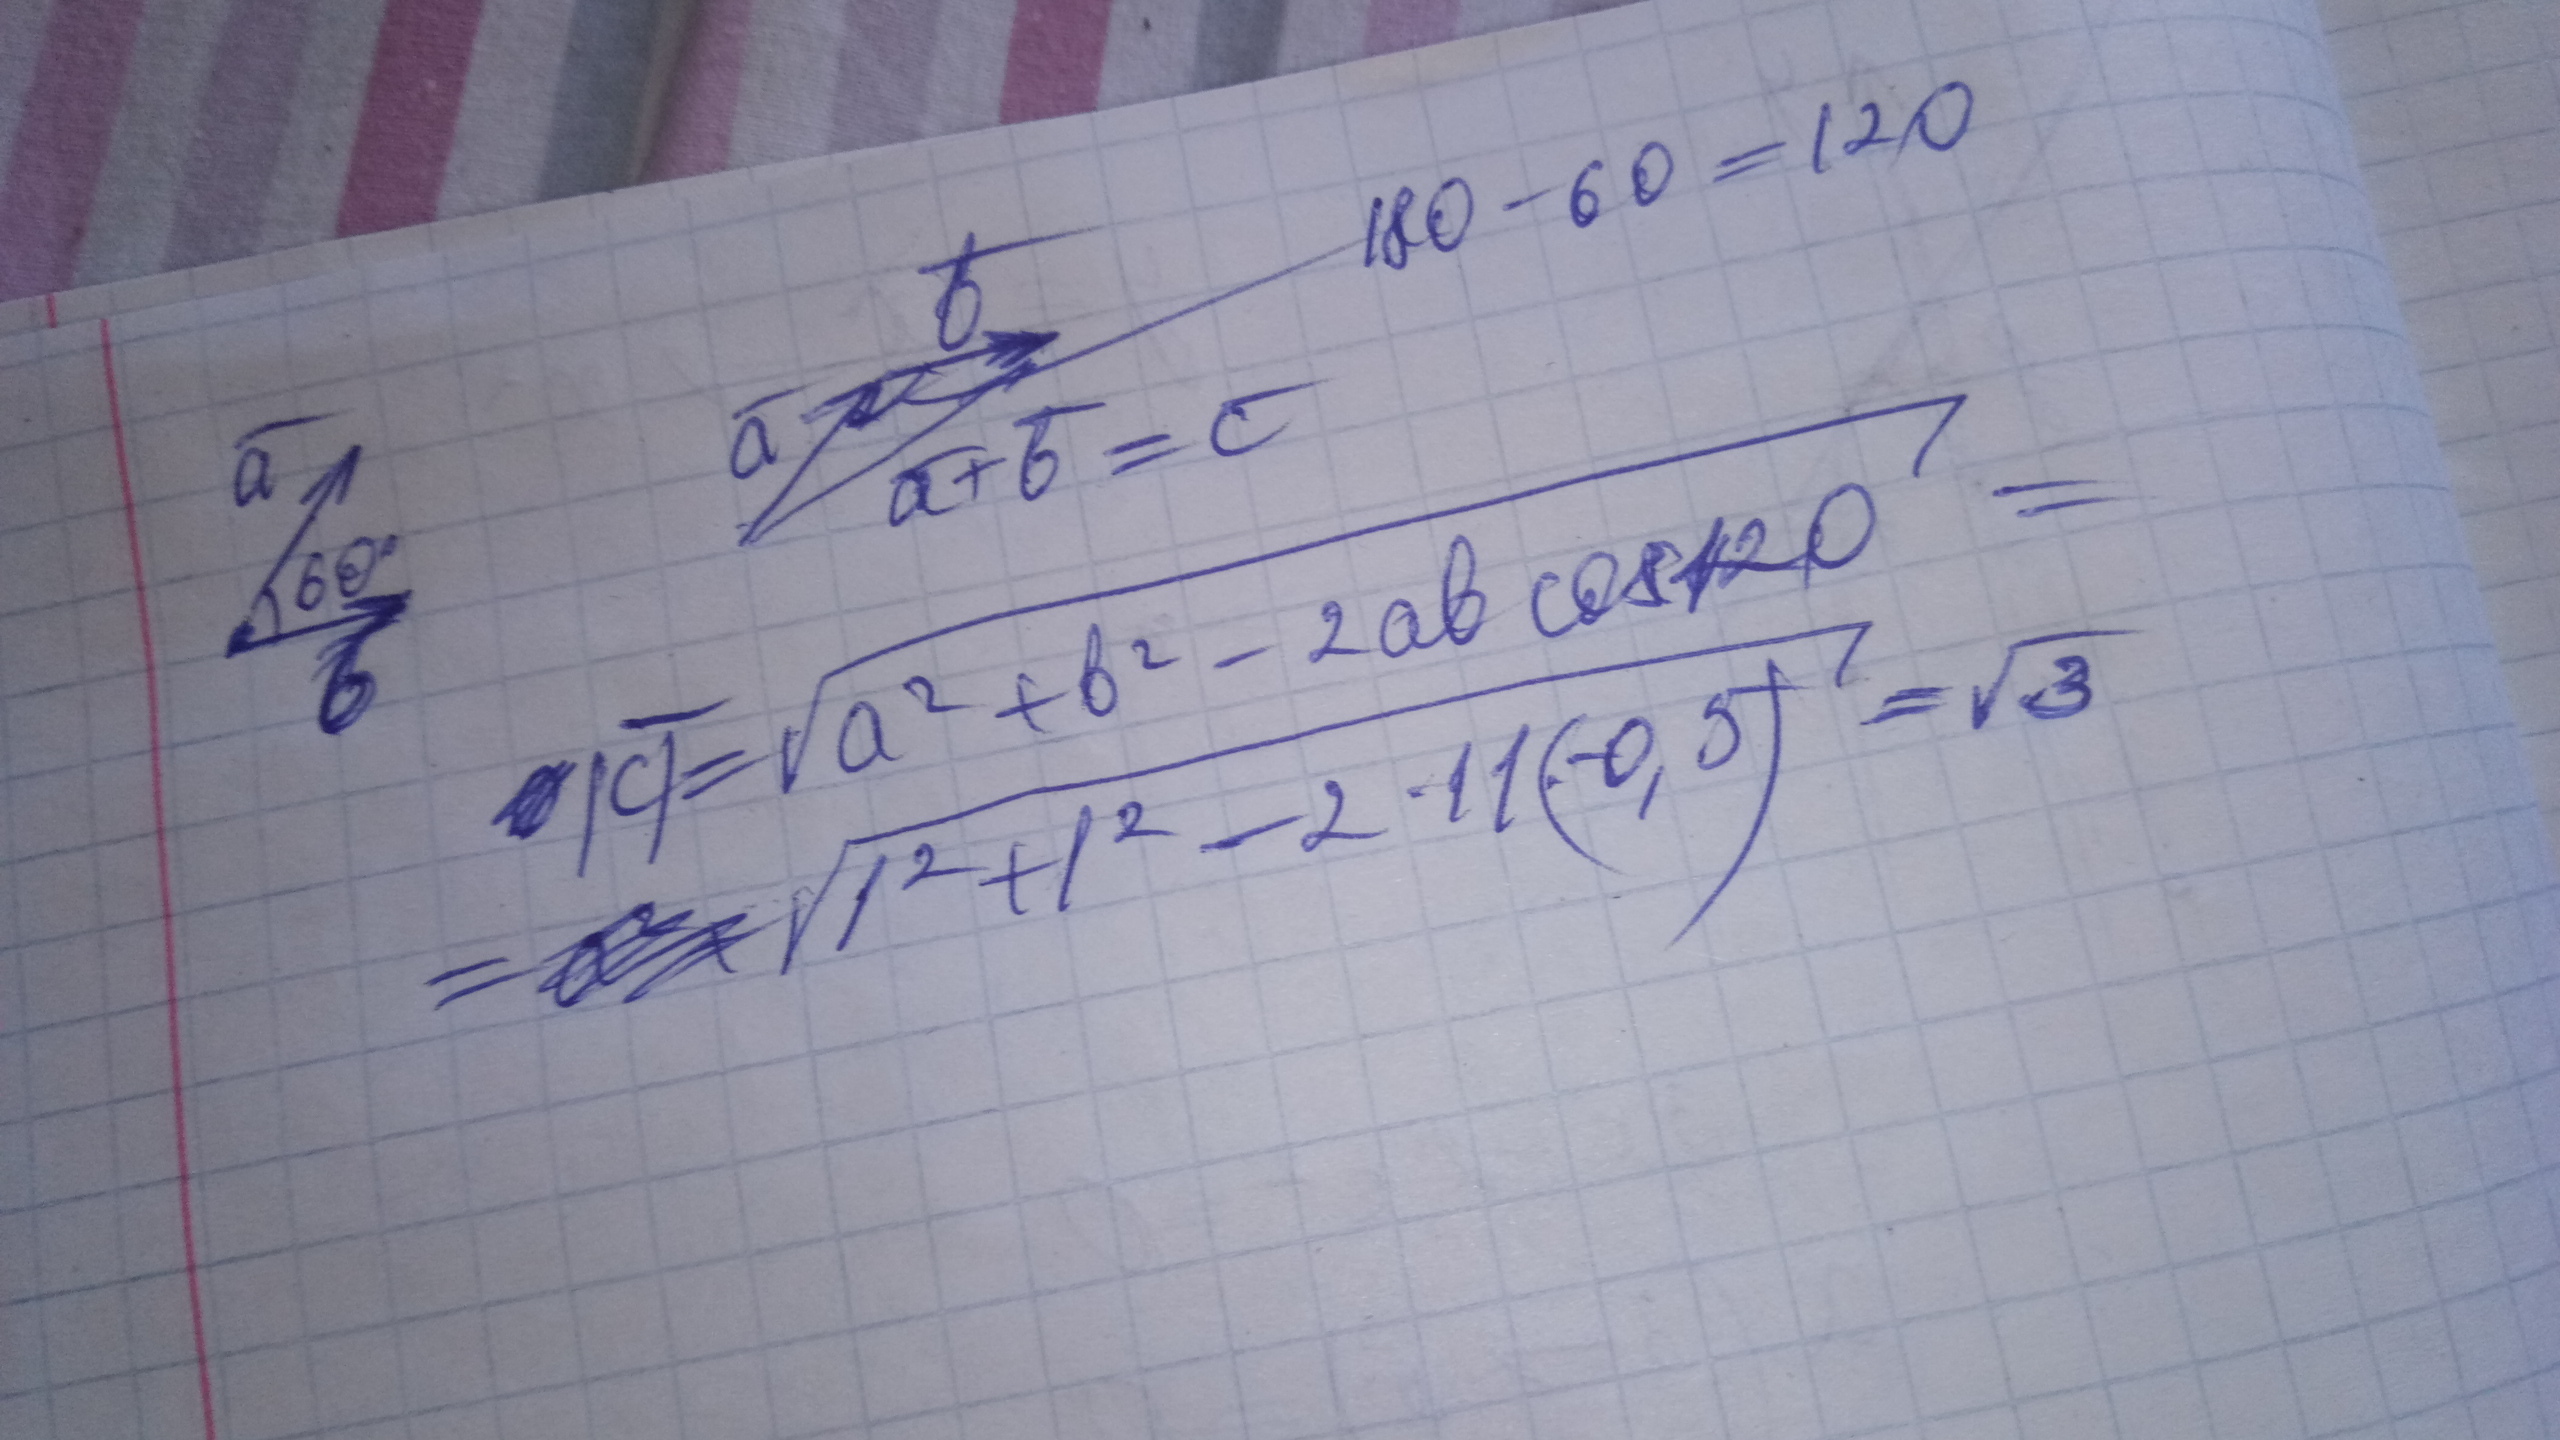 180 - 60 = 120
b̅
a̅
a̅ + b̅ = c̅
a̅
60°
b̅
|c̅| = √(a² + b² - 2ab cos120) =
= √(1² + 1² - 2 · 11(-0,5)) = √3